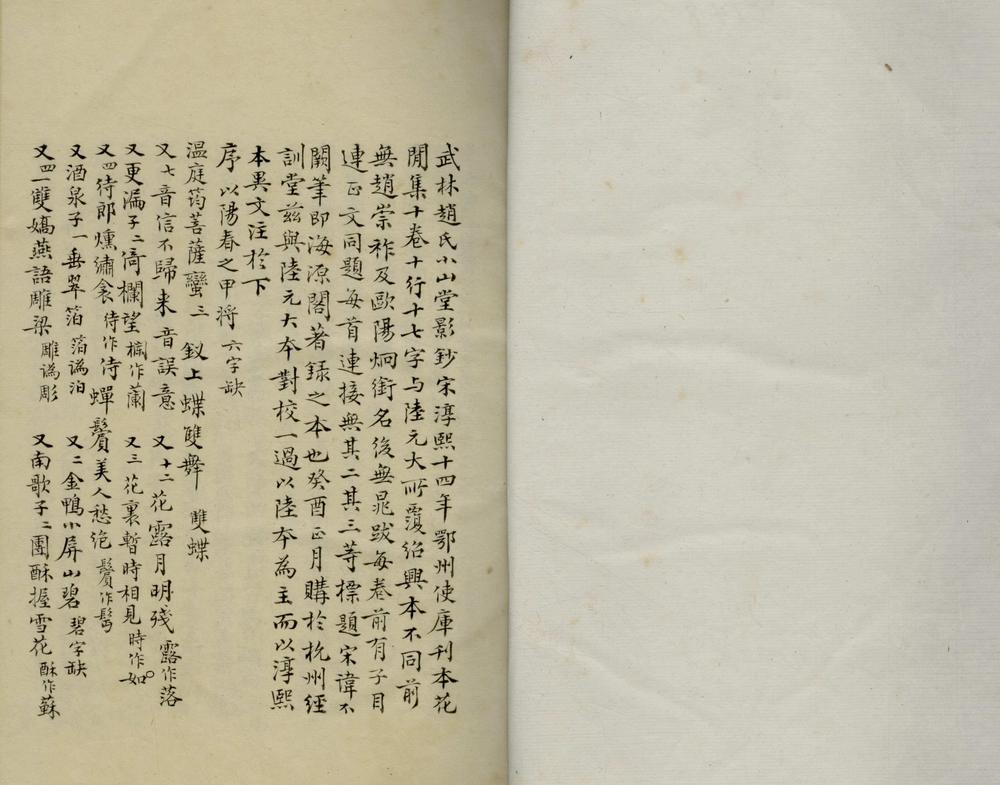 武林趙氏小山堂影鈔宋淳熙十四年鄂州使庫刊本花
閒集十卷十行十七字与陸元大所覆紹興本不同前
無趙崇祚及歐陽炯銜名後無晁跋每卷前有子目
連正文同題每首連接無其二其三等標題宋諱不
闕筆即海源閣著錄之本也癸酉正月購於杭州經
訓堂茲與陸元大本對校一過以陸本為主而以淳熙
本異文注於下
序 以陽春之甲将 六字缺
温庭筠菩薩蠻三 釵上蝶雙舞 雙蝶
又七音信不歸来 音誤意 又十二花露月明殘 露作落
又更漏子二倚欄望 欄作蘭 又三花裏暫時相見 時作如
又四待郎燻繡衾 待作侍 蟬鬢美人愁绝 鬢作髩
又酒泉子一垂翠箔 箔譌泊 又二金鴨小屏山碧 碧字缺
又四一雙嬌燕語雕梁 雕譌彫 又南歌子二團酥握雪花 酥作蘇